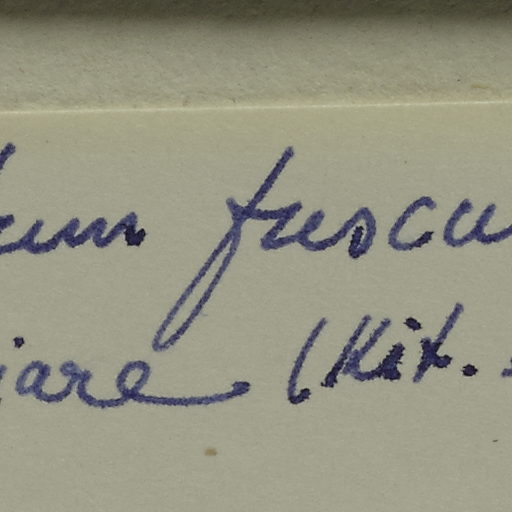 um fuscu
iare (Kit.